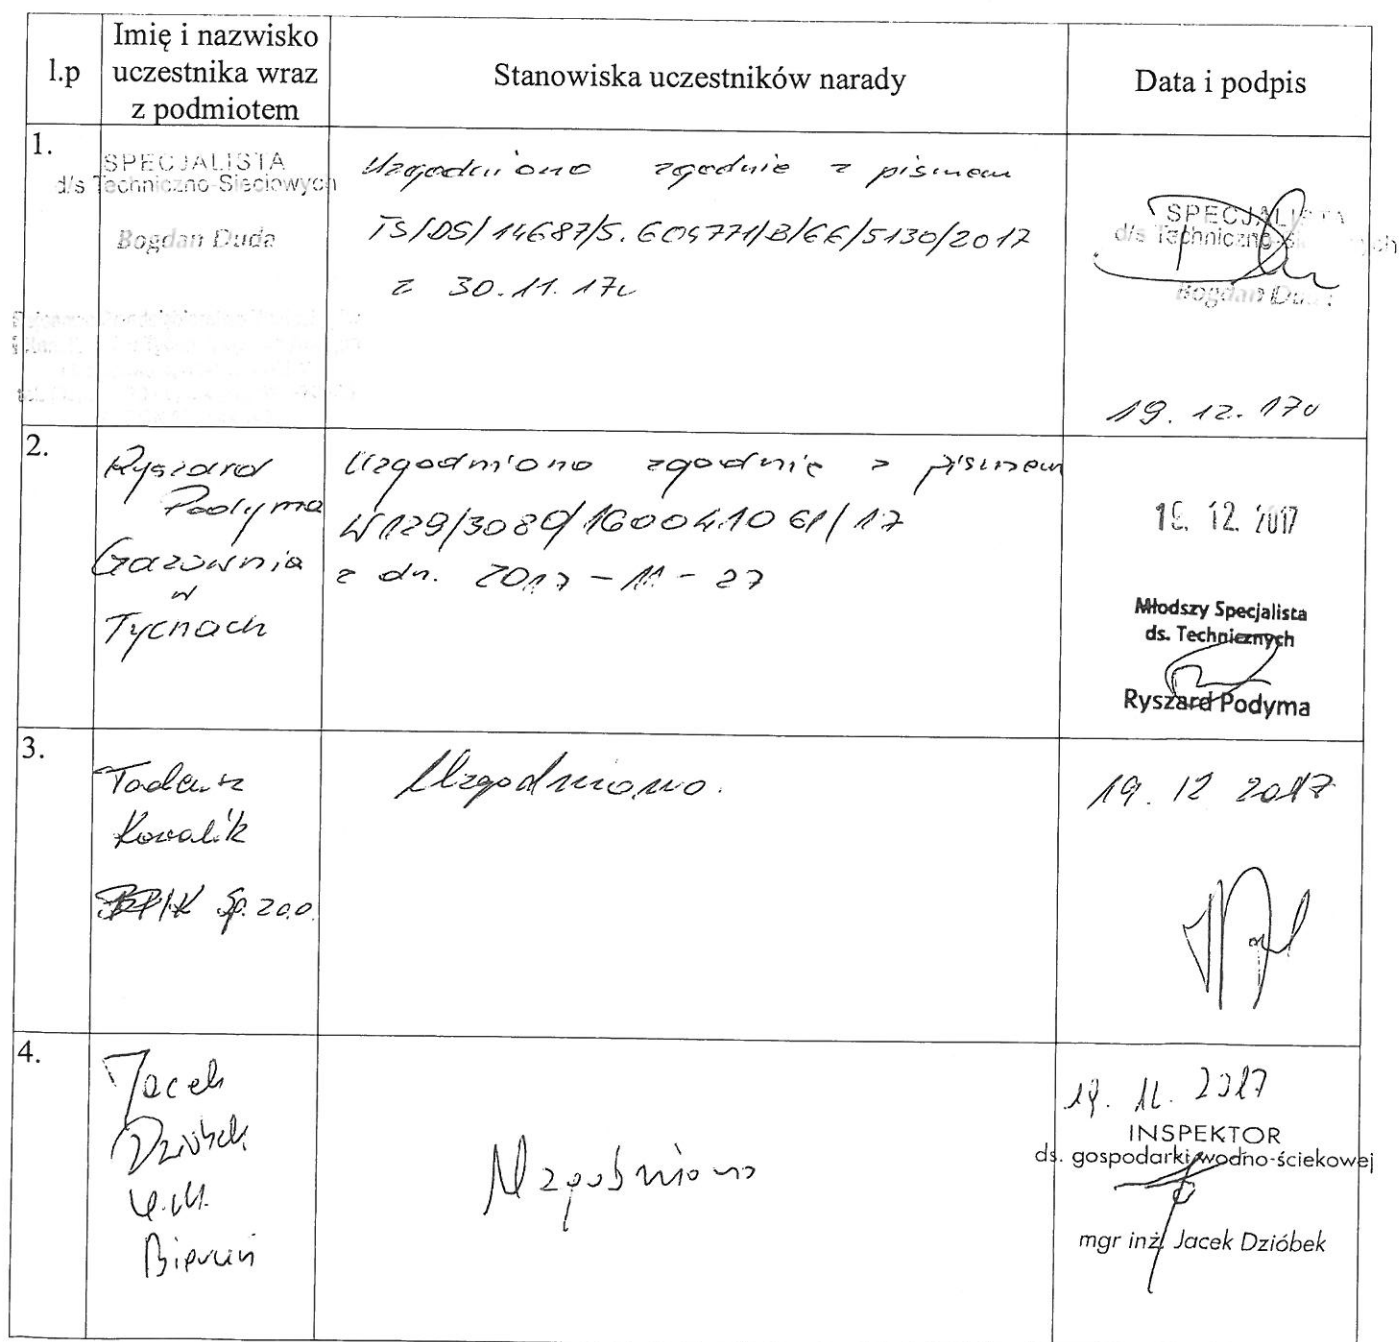 l.p
Imię i nazwisko
uczestnika wraz
z podmiotem
Stanowiska uczestników narady
Data i podpis
1.
SPECJALISTA
d/s Techniczno-Sieciowych
Bogdan Duda
Uzgodniono zgodnie z pismem
TS/DS/14687/S.604771/B/GE/5130/2017
z 30.11.17r
SPECJALISTA
d/s Techniczno-
Bogdan Duda
19.12.17r
2.
Ryszard
Podyma
Gazownia
w
Tychach
Uzgodniono zgodnie z pismem
W129/3080/160041061/17
z dn. 2017-11-27
12. 2017
Młodszy Specjalista
ds. Technicznych
Ryszard Podyma
3.
Tadeusz
Kowalik
Sp. z o.o.
Uzgodniono.
19. 12 2017
4.
Jacek
Dzióbek
U.M.
Bieruń
Uzgodniono
2017
INSPEKTOR
ds. gospodarki wodno-ściekowej
mgr inż. Jacek Dzióbek